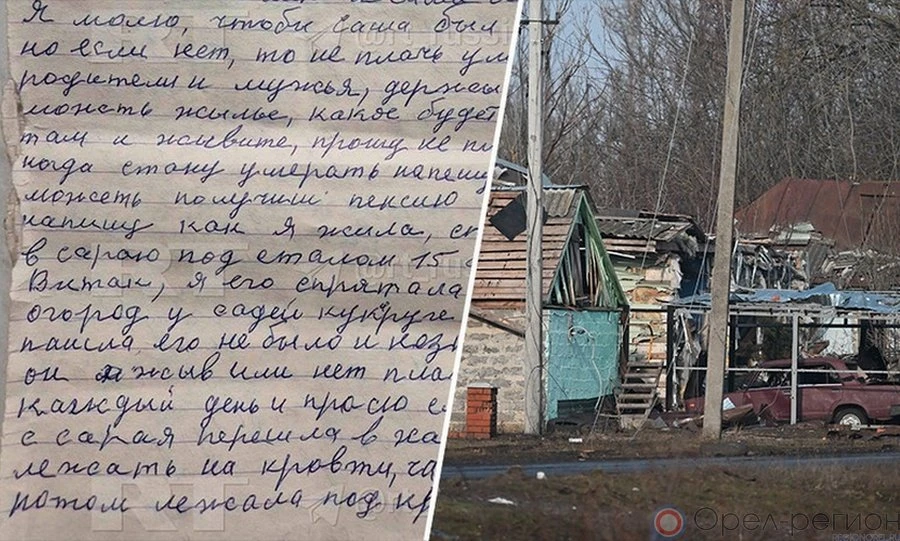 Я молю, чтоби Саша был
но если нет, то не плачь ум
родители и мужья, держы
можеть жылье, какое будет
там и жывите, прошу не пл
когда стану умерать напешу
можеть получиш пенсию
напишу как я жила, сп
в сараю под сталом 15
Витак, я его спрятала
огород у садей кукруге
пашла, его не было и козы
он жыв или нет плач
каждый день и прасю
с сарая перешла в ха
лежать на кровти, ча
потом лежала под кр
RT
Орел-регион